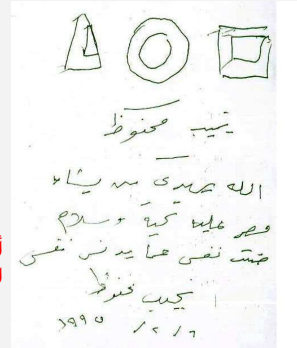 نجيب محفوظ
الله يهدي من يشاء
مصر عليها تحية وسلام
صنت نفسي عما يدنس نفسي
نجيب محفوظ
١٩٩٥ / ٢ / ٦